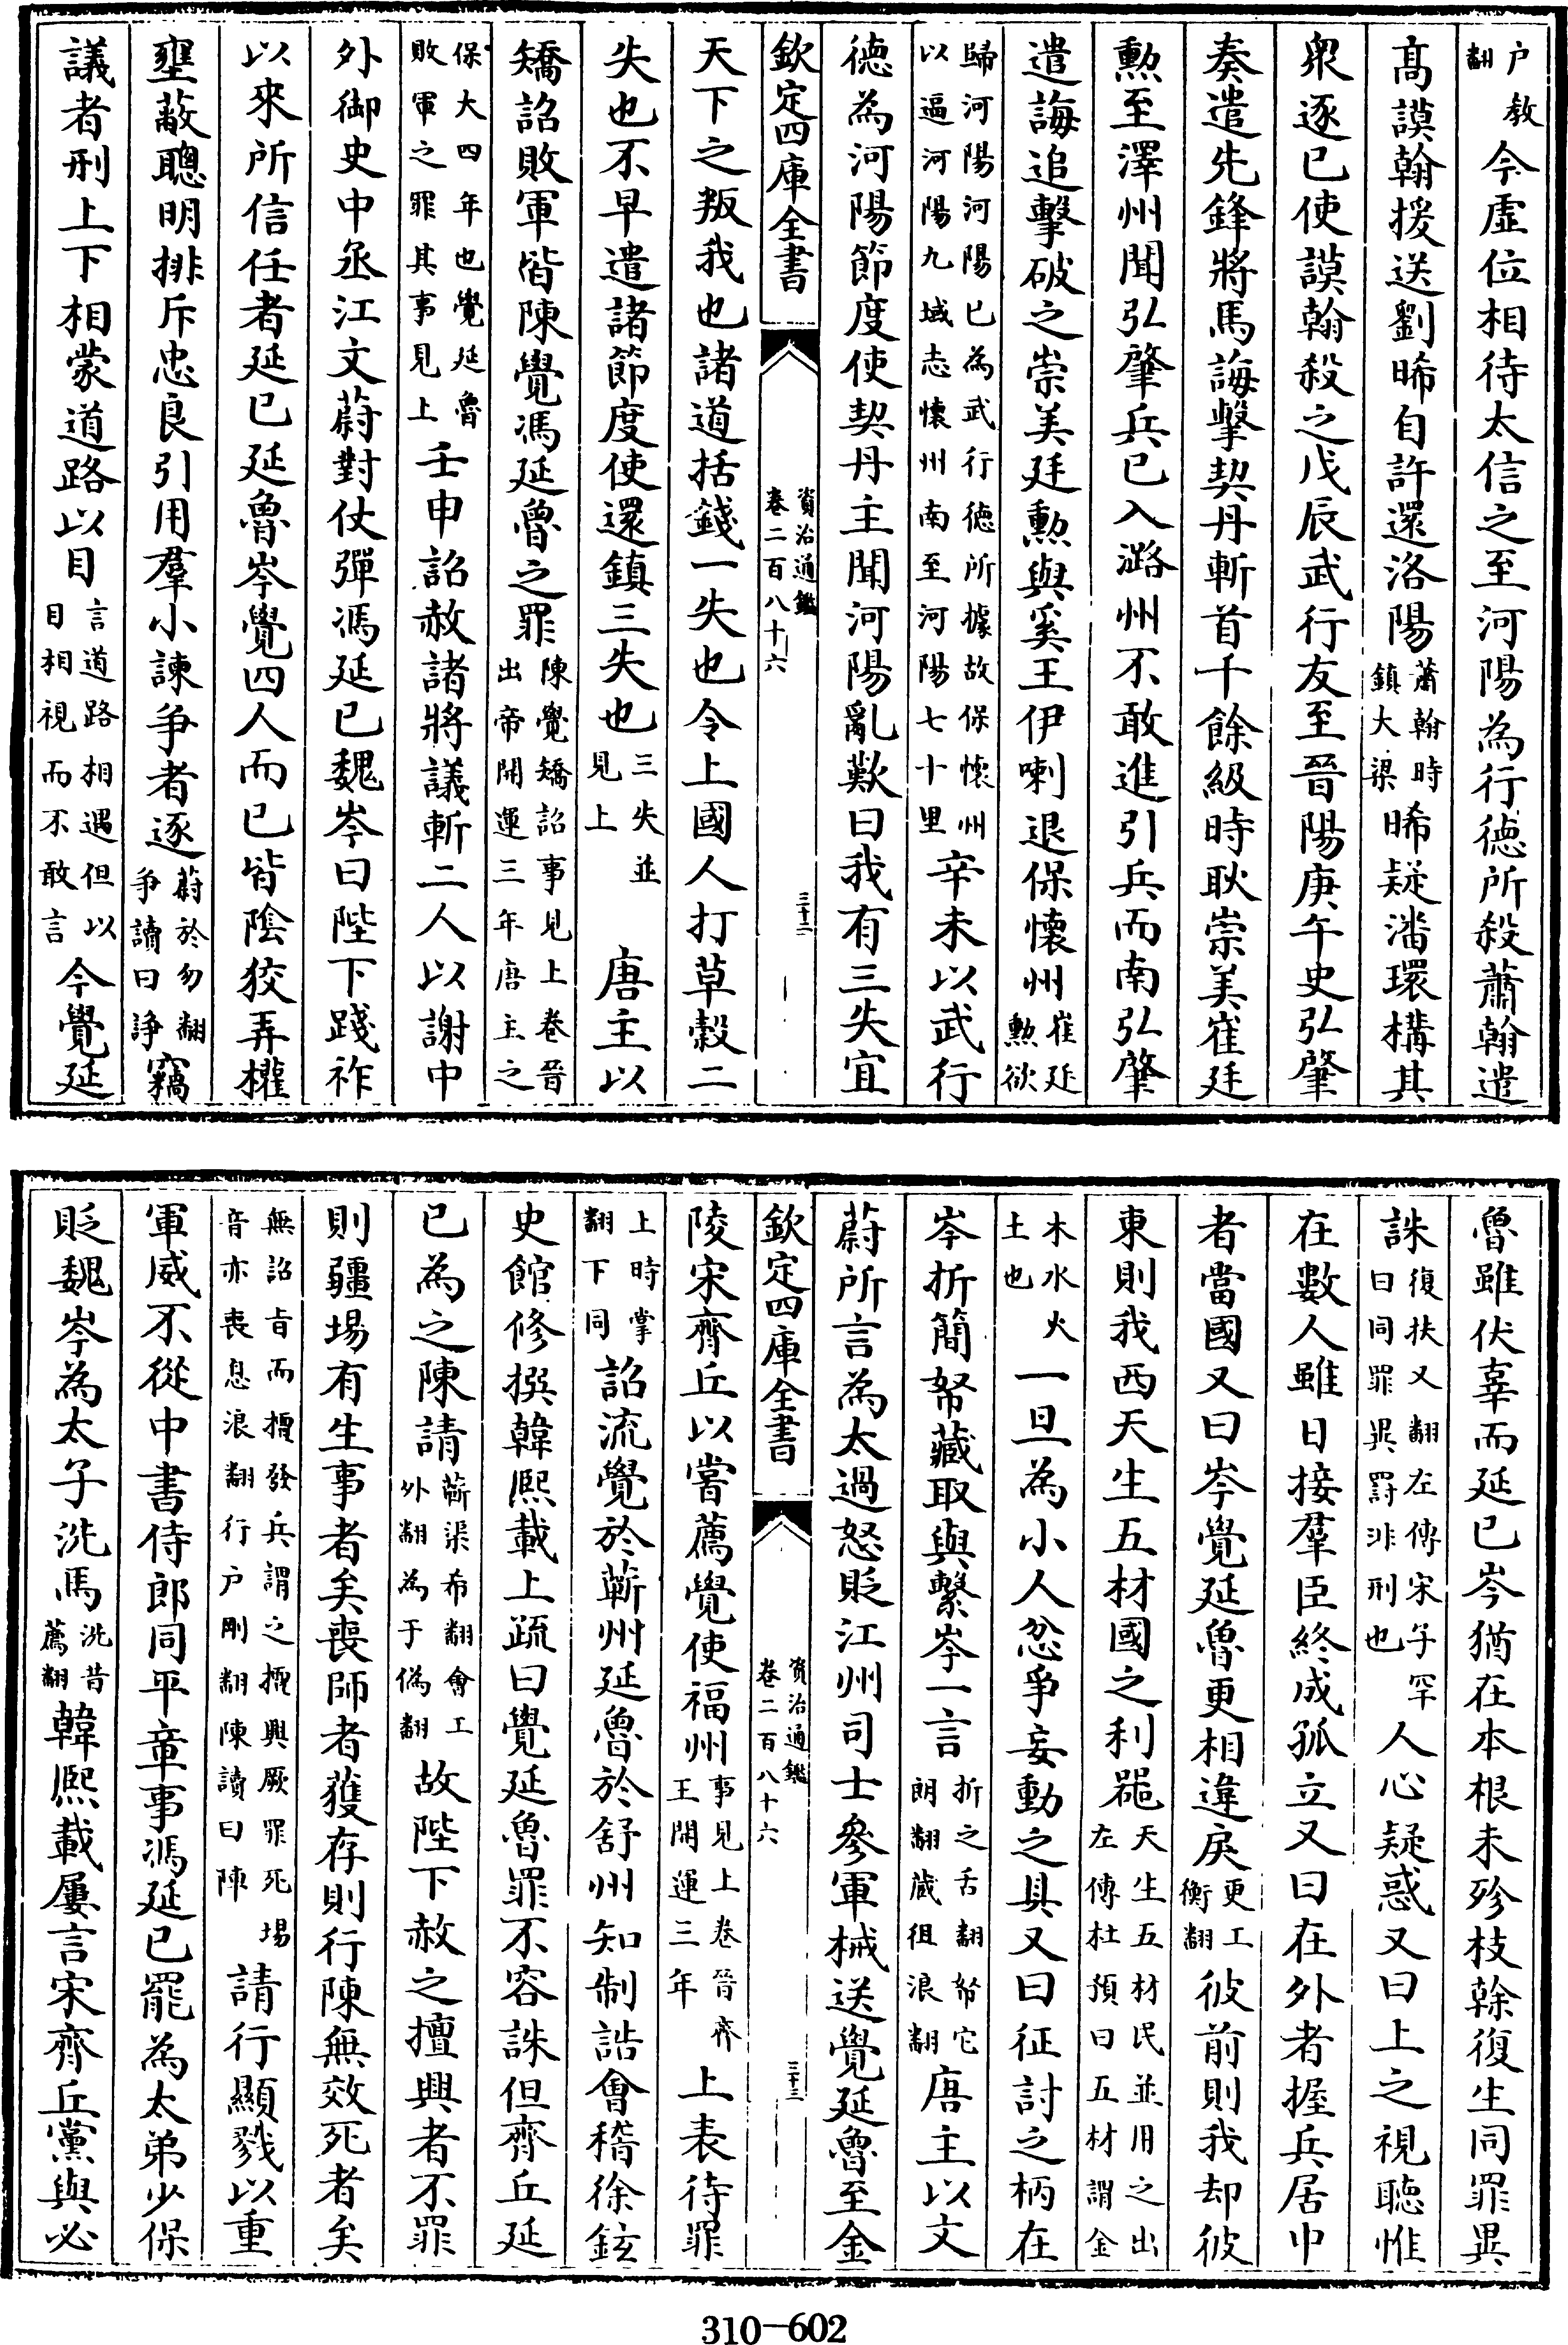 户教翻今虚位相待太信之至河陽為行徳所殺蕭翰遣
髙謨翰援送劉晞自許還洛陽蕭翰時鎮大梁晞疑潘環構其
衆逐已使謨翰殺之戊辰武行友至晉陽庚午史弘肇
奏遣先鋒將馬誨擊契丹斬首千餘級時耿崇美崔廷
勲至澤州聞弘肇兵已入潞州不敢進引兵而南弘肇
遣誨追擊破之崇美廷勲與奚王伊喇退保懷州崔廷勲欲
歸河陽河陽已為武行徳所據故保懷州以逼河陽九域志懷州南至河陽七十里辛未以武行
徳為河陽節度使契丹主聞河陽亂歎曰我有三失宜
欽定四庫全書
資治通鑑
卷二百八十六
三十二
天下之叛我也諸道括錢一失也令上國人打草穀二
失也不早遣諸節度使還鎮三失也三失並見上 唐主以
矯詔敗軍皆陳覺馮延魯之罪陳覺矯詔事見上卷晉出帝開運三年唐主之
保大四年也覺延魯敗軍之罪其事見上壬申詔赦諸將議斬二人以謝中
外御史中丞江文蔚對仗彈馮延已魏岑曰陛下踐祚
以來所信任者延已延魯岑覺四人而已皆陰狡弄權
壅蔽聰明排斥忠良引用羣小諫爭者逐蔚於勿翻爭讀曰諍竊
議者刑上下相蒙道路以目言道路相遇但以目相視而不敢言今覺延
魯雖伏辜而延已岑猶在本根未殄枝榦復生同罪異
誅復扶又翻左傳宋子罕曰同罪異罰非刑也人心疑惑又曰上之視聽惟
在數人雖日接羣臣終成孤立又曰在外者握兵居中
者當國又曰岑覺延魯更相違戾更工衡翻彼前則我却彼
東則我西天生五材國之利噐天生五材民並用之出左傳杜預曰五材謂金
木水火土也一旦為小人忿爭妄動之具又曰征討之柄在
岑折簡帑藏取與繫岑一言折之舌翻帑它朗翻藏徂浪翻唐主以文
蔚所言為太過怒貶江州司士參軍械送覺延魯至金
欽定四庫全書
資治通鑑
卷二百八十六
三十三
陵宋齊丘以嘗薦覺使福州事見上卷晉齊王開運三年上表待罪
上時掌翻下同詔流覺於蘄州延魯於舒州知制誥會稽徐鉉
史館修撰韓熙載上疏曰覺延魯罪不容誅但齊丘延
已為之陳請蘄渠希翻會工外翻為于偽翻故陛下赦之擅興者不罪
則疆場有生事者矣喪師者獲存則行陳無效死者矣
無詔旨而擅發兵謂之擅興厥罪死場音亦喪息浪翻行户剛翻陳讀曰陣請行顯戮以重
軍威不從中書侍郎同平章事馮延已罷為太弟少保
貶魏岑為太子洗馬洗昔薦翻韓熙載屢言宋齊丘黨與必
310-602